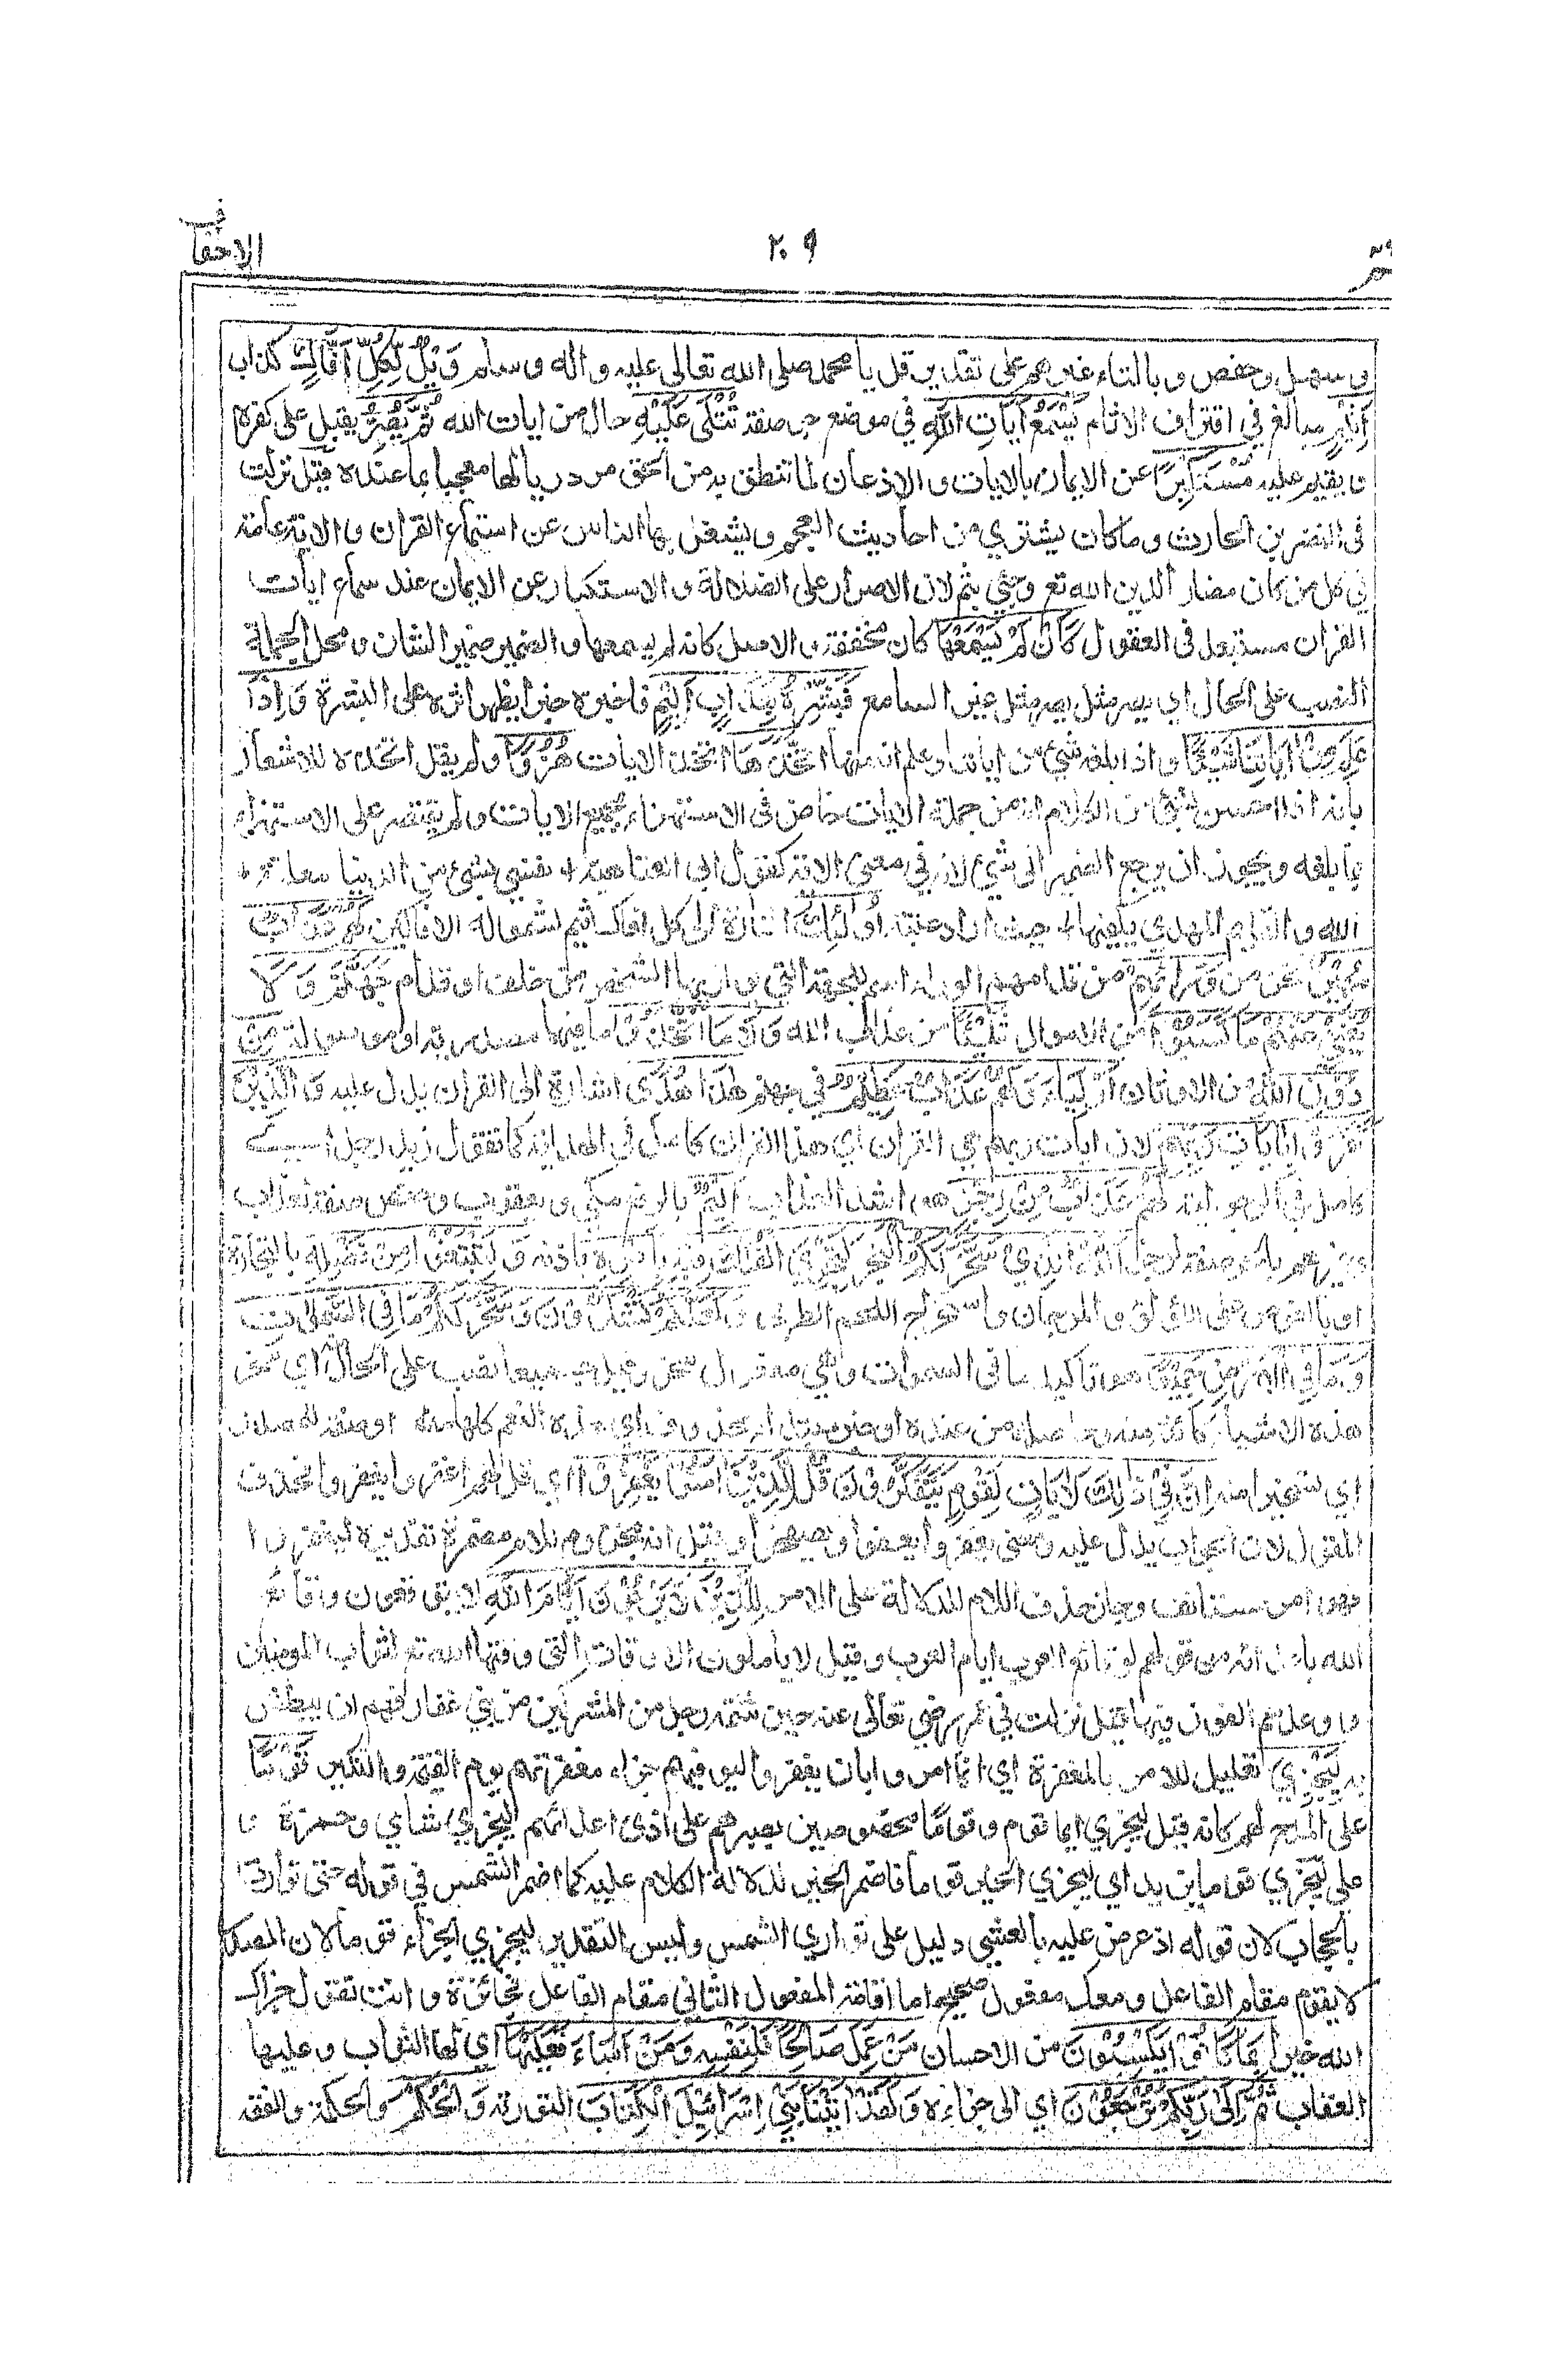 الاحقاف
٢٠٩
حم
و سهل وحفص وبالتاء غيرهم على تقدير قل يا محمد صلى الله تعالى عليه واله وسلم وَيْلٌ لِّكُلِّ اَفَّاكٍ كذاب
اَثِيْمٍ مبالغ في اقتراف الاثام يَسْمَعُ اٰيَاتِ اللهِ في موضع جر صفة تُتْلٰى عَلَيْهِ حال من ايات الله ثُمَّ يُصِرُّ يقبل على كفره
ويقيم عليه مُسْتَكْبِرًا عن الايمان بالايات والاذعان لما تنطق به من الحق مزدريا لها معجبا بما عنده قيل نزلت
فى النضر بن الحارث وما كان يشتري من احاديث العجم ويشغل بها الناس عن استماع القران والاية عامة
في كل من كان مضارا لدين الله تع وجئ بثم لان الاصرار على الضلالة والاستكبار عن الايمان عند سماع ايات
القران مستبعد فى العقول كَاَنْ لَّمْ يَسْمَعْهَا كان مخففة والاصل كانه لم يسمعها والضمير ضمير الشان ومحل الجملة
النصب على الحال اي يصر مثل غير السامع فَبَشِّرْهُ بِعَذَابٍ اَلِيْمٍ فاخبره خبرا يظهر اثره على البشرة وَاِذَا
عَلِمَ مِنْ اٰيَاتِنَا شَيْئًا واذا بلغه شئ من اياتنا وعلم انه منها اتَّخَذَهَا اتخذ الايات هُزُوًا ولم يقل اتخذه للاشعار
بانه اذا احس بشئ من الكلام انه من جملة الايات خاض فى الاستهزاء بجميع الايات ولم يقتصر على الاستهزاء
بما بلغه ويجوز ان يرجع الضمير الى شئ لانه في معنى الاية كقول ابى العتاهية + نفسي بشئ من الدنيا معلقة +
الله والقائم المهدي يكفيها + حيث اراد عتبة اُولٰئِكَ اشارة الى كل افاك اثيم لشموله الافاكين لَهُمْ عَذَابٌ
مُّهِيْنٌ مخز مِنْ وَّرَآئِهِمْ من قدامهم الوراء اسم للجهة التي يواريها الشخص من خلف او قدام جَهَنَّمُ وَلَا
يُغْنِيْ عَنْهُمْ مَا كَسَبُوْا من الاموال شَيْئًا من عذاب الله وَلَا مَا اتَّخَذُوْا ما فيهما مصدرية او موصولة مِنْ
دُوْنِ اللهِ من الاوثان اَوْلِيَاءَ وَلَهُمْ عَذَابٌ عَظِيْمٌ في جهنم هٰذَا هُدًى اشارة الى القران يدل عليه وَالَّذِيْنَ
كَفَرُوْا بِاٰيَاتِ رَبِّهِمْ لان ايات ربهم هي القران اي هذا القران كامل فى الهداية كما تقول زيد رجل اي
كامل في الرجولية لَهُمْ عَذَابٌ مِّنْ رِّجْزٍ هو اشد العذاب اَلِيْمٌ بالرفع مكي ويعقوب وحفص صفة لعذاب
وغيرهم بالجر صفة لرجز اَللهُ الَّذِيْ سَخَّرَ لَكُمُ الْبَحْرَ لِتَجْرِيَ الْفُلْكُ فِيْهِ بِاَمْرِهٖ باذنه وَلِتَبْتَغُوْا مِنْ فَضْلِهٖ بالتجارة
او بالغوص على اللؤلؤ والمرجان واستخراج اللحم الطري وَلَعَلَّكُمْ تَشْكُرُوْنَ وَسَخَّرَ لَكُمْ مَا فِى السَّمٰوٰتِ
وَمَا فِى الْاَرْضِ جَمِيْعًا هو تاكيد ما فى السموات وهي مفعول سخر وقيل جميعا نصب على الحال اي سخر
هذه الاشياء كائنة منه حاصلة من عنده او خبر مبتدأ محذوف اي هذه النعم كلها منه او صفة للمصدر
اي تسخيرا منه اِنَّ فِيْ ذٰلِكَ لَاٰيَاتٍ لِّقَوْمٍ يَّتَفَكَّرُوْنَ قُلْ لِّلَّذِيْنَ اٰمَنُوْا يَغْفِرُوْا اي قل لهم اغفروا يغفروا فحذف
المقول لان الجواب يدل عليه ومعنى يغفروا يعفوا ويصفحوا وقيل انه مجزوم بلام مضمرة تقديره ليغفروا
فهو امر مستانف وجاز حذف اللام للدلالة على الامر لِلَّذِيْنَ لَا يَرْجُوْنَ اَيَّامَ اللهِ لا يتوقعون وقائع
الله باعدائه من قولهم لوقائع العرب ايام العرب وقيل لا ياملون الاوقات التي وقتها الله تع لثواب المومنين
ووعدهم الفوز فيها قيل نزلت في عمر رضي تعالى عنه حين شتمه رجل من المشركين من بني غفار فهم ان يبطش
به لِيَجْزِيَ تعليل للامر بالمغفرة اي انما امروا بان يغفروا ليوفيهم جزاء مغفرتهم يوم القيمة والتنكير قَوْمًا
على المدح لهم كانه قيل ليجزي ايما قوم وقوما مخصوصين بصبرهم على اذى اعدائهم لنجزي شامي وحمزة و
علي ليُجزي قوما يزيد اي ليجزي الخير قوما فاضمر الخير لدلالة الكلام عليه كما اضمر الشمس في قوله حتى توارت
بالحجاب لان قوله اذ عرض عليه بالعشي دليل على تواري الشمس وليس التقدير ليجزي الجزاء قوما لان المصدر
لا يقوم مقام الفاعل ومعك مفعول صحيح اما اقامة المفعول الثاني مقام الفاعل فجائزة وانت تقول جزاك
الله خيرا بِمَا كَانُوْا يَكْسِبُوْنَ من الاحسان مَنْ عَمِلَ صَالِحًا فَلِنَفْسِهٖ وَمَنْ اَسَاءَ فَعَلَيْهَا اي لها الثواب وعليها
العقاب ثُمَّ اِلٰى رَبِّكُمْ تُرْجَعُوْنَ اي الى جزاءه وَلَقَدْ اٰتَيْنَا بَنِيْ اِسْرَائِيْلَ الْكِتَابَ التورية وَالْحُكْمَ والحكمة والفقه